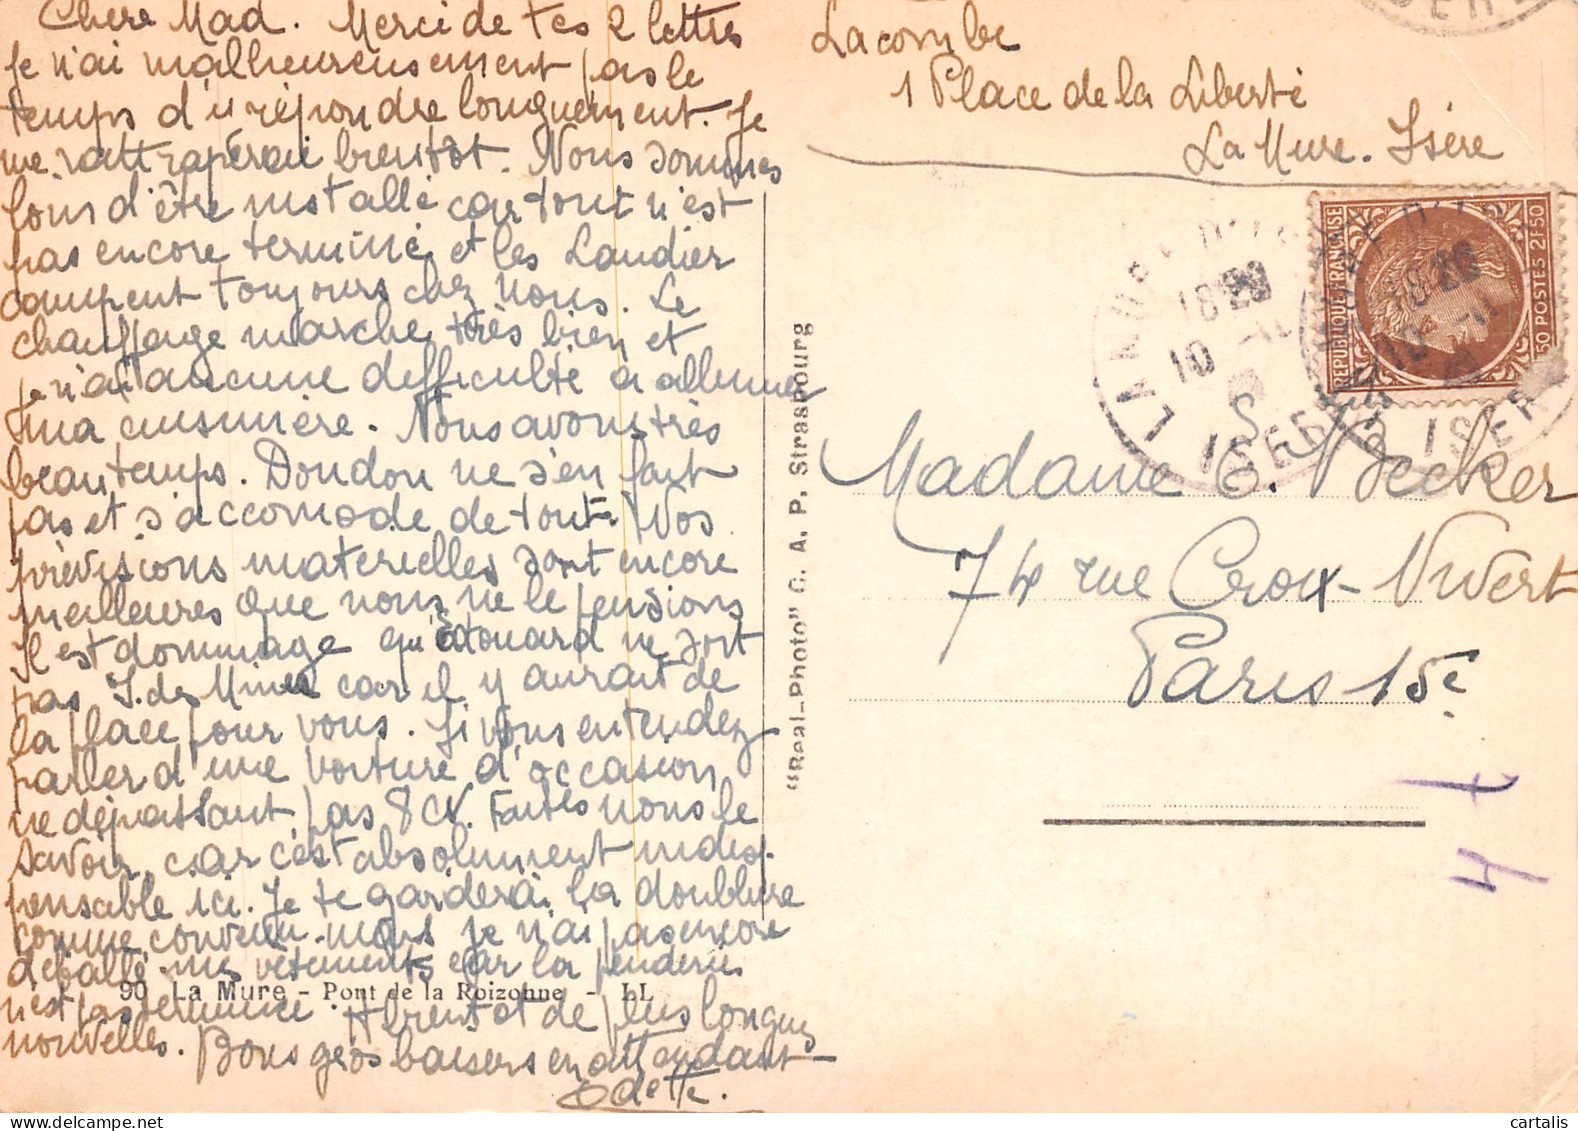 Chère Mad. Merci de tes 2 lettres
Je n'ai malheureusement pas le
temps d'y répondre longuement. Je
me rattraperai bientôt. Nous sommes
loin d'être installé car tout n'est
pas encore terminé et les Landier
campent toujours chez nous. Le
chauffage marche très bien et
je n'ai aucune difficulté à allumer
ma cuisinière. Nous avons très
beau temps. Doudou ne s'en fait
pas et s'accomode de tout. Vos
prévisions materielles sont encore
meilleures que nous ne le pensions
Il est dommage qu'Edouard ne sort
pas I. des Mines car il y aurait de
la place pour vous. Si vous entendez
parler d'une voiture d'occasion
ne dépassant pas 8 CV. Faites nous le
savoir, car c'est absolument indis-
pensable ici. Je te garderai la doublure
comme convenu. mais je n'ai pas encore
déballé mes vêtements car la penderie
n'est pas terminée. A bientôt de plus longues
nouvelles. Bons gros baisers en attendant
Odette.
90 La Mure - Pont de la Roizonne - LL
"Real-Photo" C. A. P. Strasbourg
Lacombe
1 Place de la Liberté
La Mure. Isère
REPUBLIQUE FRANÇAISE
POSTES 2F50
LA MURE D'ISERE
18 20
10 -11
ISERE
LA MURE D'ISERE
18 20
10 -11
ISERE
Madame S. Becker
74 rue Croix-Nivert
Paris 15e
cartalis
delcampe.net